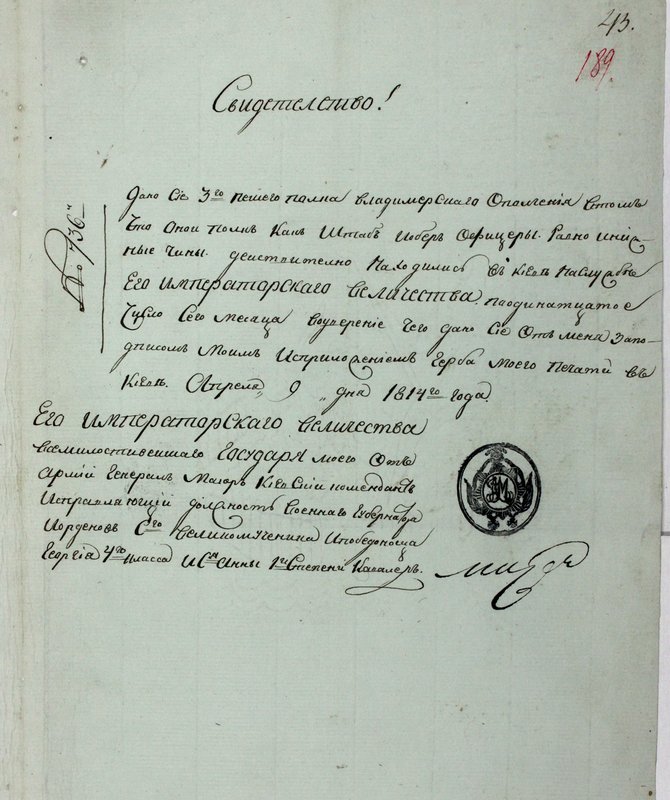 43.
189.
Свидетелство!
№ 736й
Дано Сіе 3го пешего полка Владимерскаго Ополченія втомъ
Что оной полкъ Какъ Штабъ Иоберъ Офицеры. Равно инис-
ные Чины. действително Находились въ Кіеве Наслужбе
Его Императорскаго Величества. поодинатцатое
Число Сего Месяца Воуверение Чего дано Сіе Отъ меня Запо-
дписомъ Моимъ Исприложеніемъ Герба Моего Печати въ
Кіеве. Апреля „ 9 „ дня 1814го Года
Его Императорскаго Величества
Всемилостивейшаго Государя моего Отъ
Армій Генералъ Маиоръ Кіевскій комендантъ
Исправляющій Должность Военнаго Губернатора
Иорденовъ Сго Великомученика Ипобедоносца
Георгія 4го Класса И Сй Анны 1й Степени Кавалеръ.